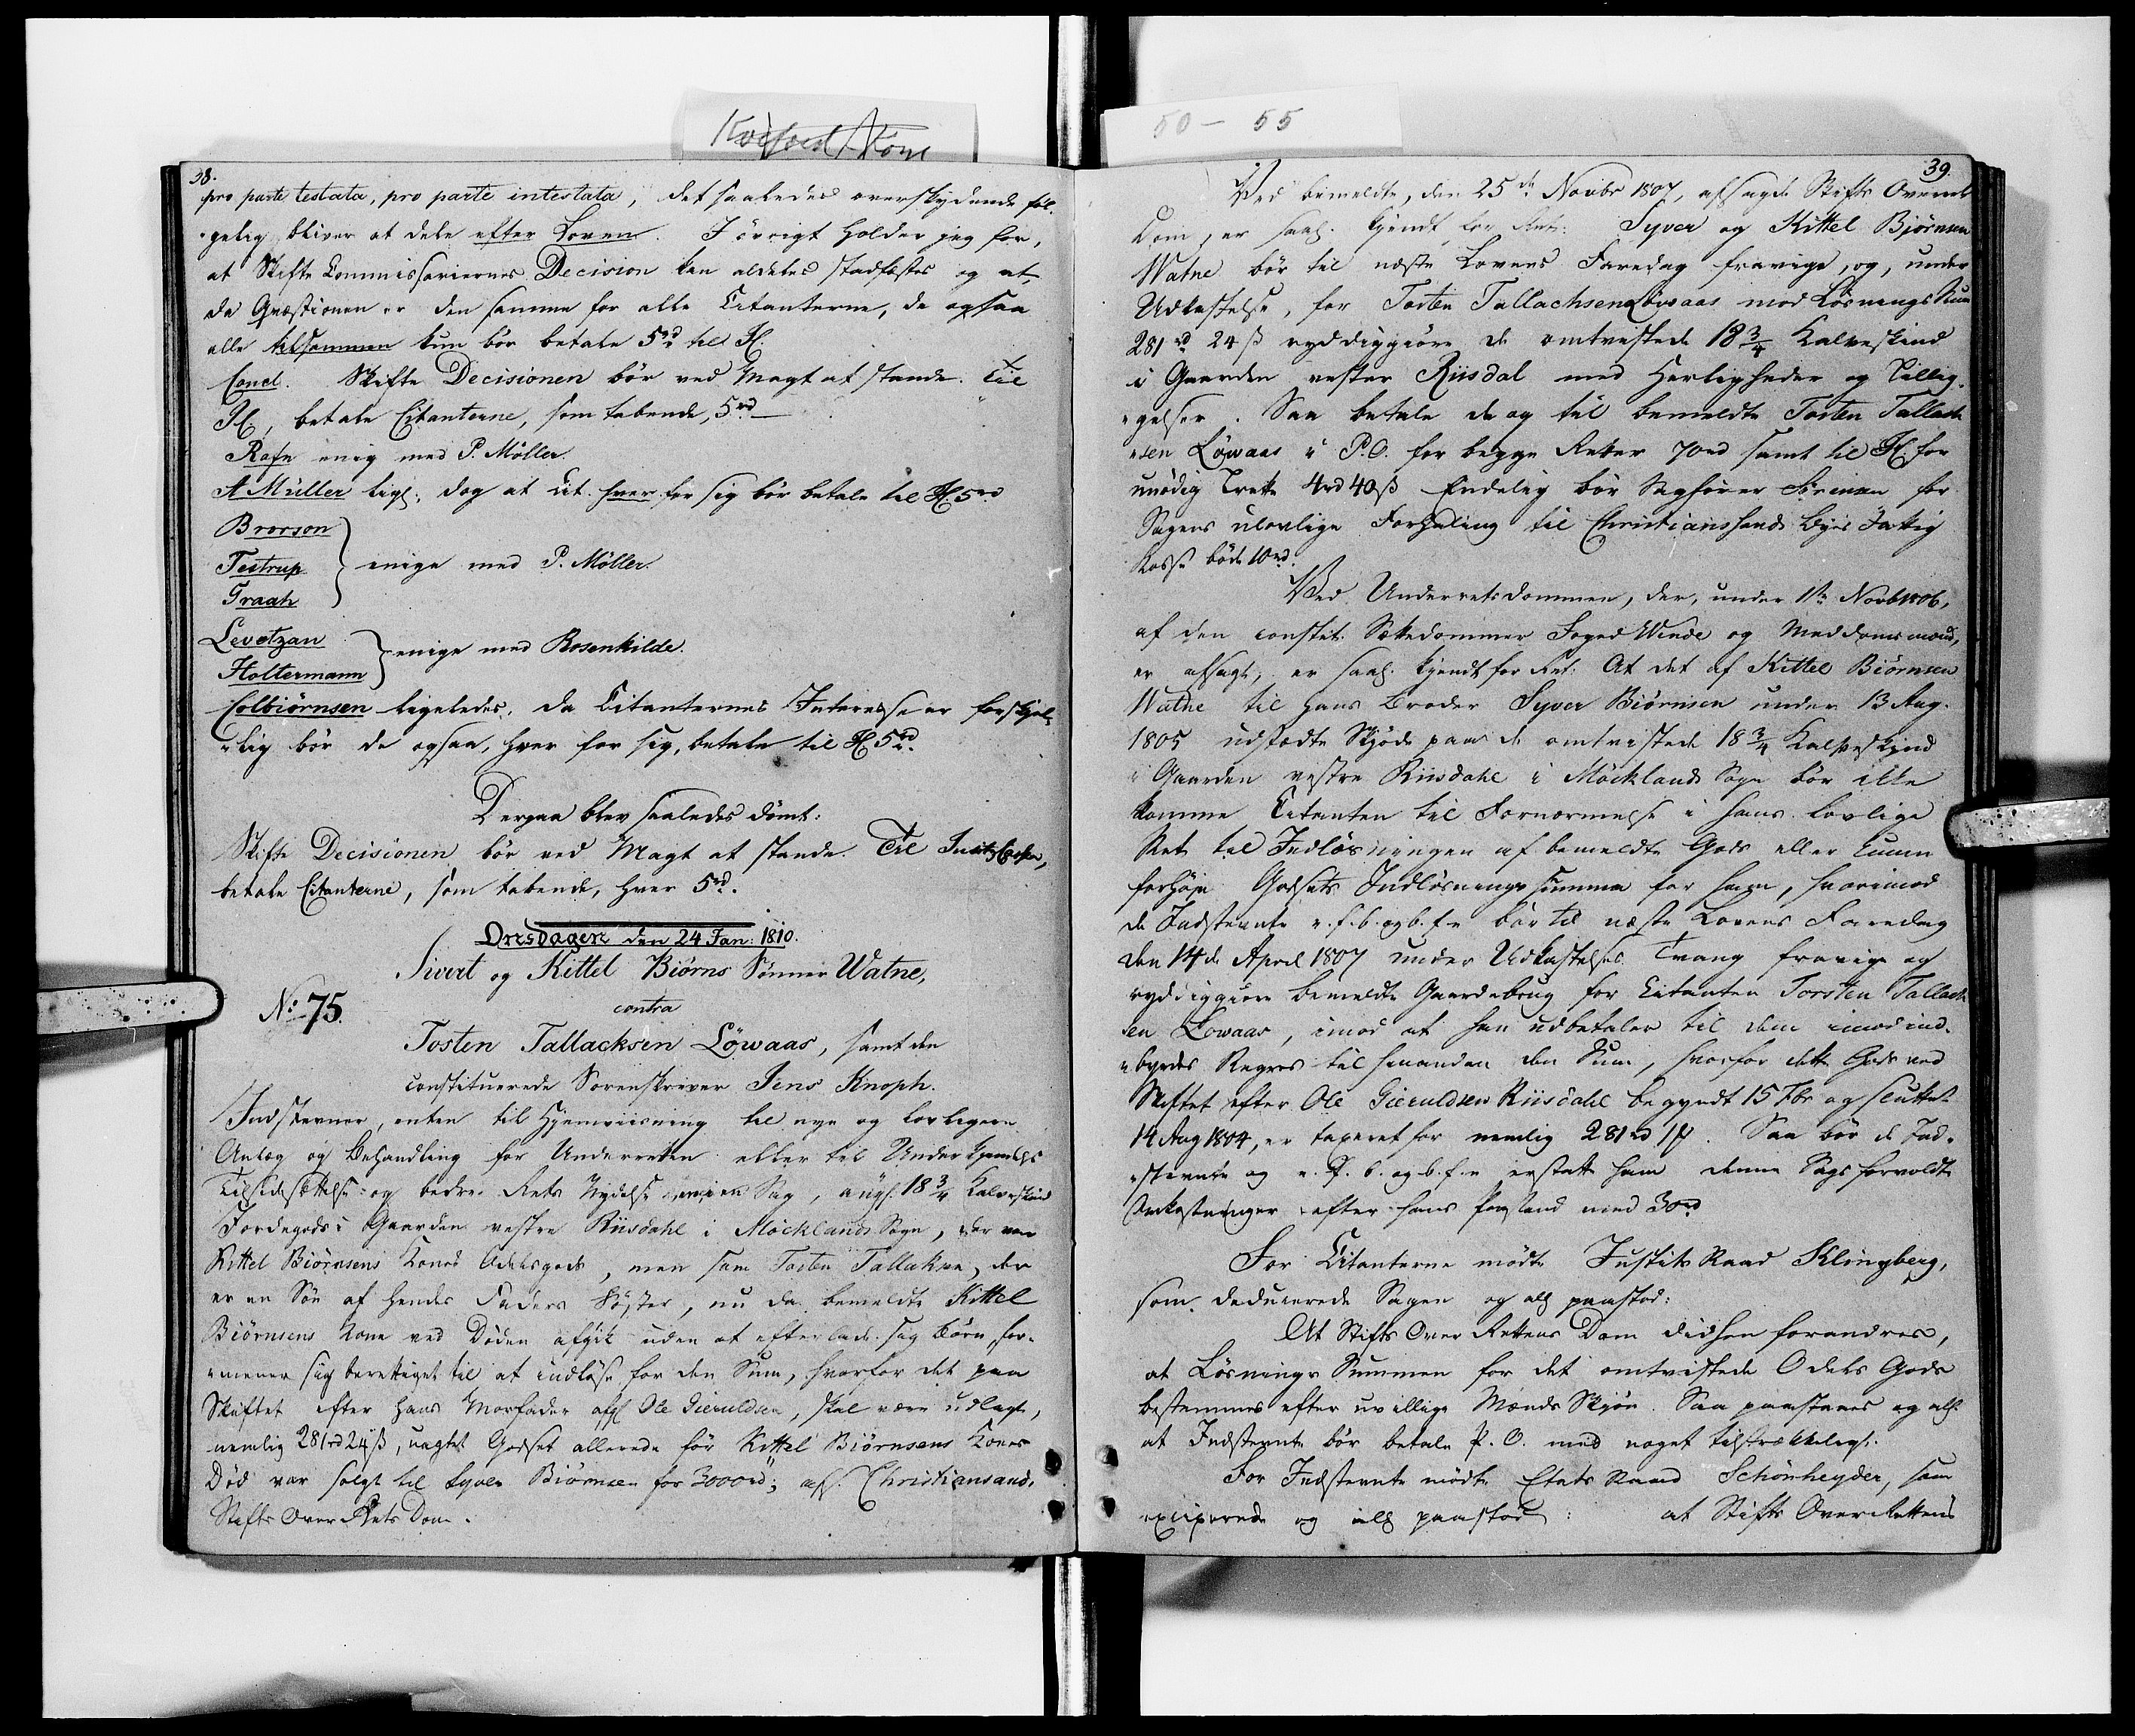 38.
pro parte testata, pro parte intestata, det saaledes overskydende føl-
gelig bliver at dele efter Loven. I øvrigt holder jeg for,
at Skifte Commissariernes Decision kan aldeles stadfæstes og at,
da Qvæstionen er den samme for alle Citanterne, de ogsaa
alle tilsammen kun bør betale 5 rd til JC.
Concl. Skifte Decisionen bør ved Magt at stande. Til
JC, betale Citanterne, som tabende, 5 rd
Rafn enig med P. Møller.
A Müller lige, dog at Cit. hver for sig bør betale til JC 5 rd
Brorson
Testrup
Traah
enige med P. Møller.
Levetzau
Holtermann
enige med Rosenkilde.
Colbiørnsen ligeledes, da Citanternes Interesse er forskjel-
lig bør de ogsaa, hver for sig, betale til JC 5 rd.
Derpaa blev saaledes dømt:
Skifte Decisionen bør ved Magt at stande. Til Justitscassen,
betale Citanterne, som tabende, hver 5 rd.
Onsdagen den 24 Jan: 1810.
Sivert og Kittel Biørns Sønner Watne,
No 75.
contra
Tosten Tallacksen Löwaas, samt den
constituerede Sorenskriver Jens Knoph.
Indstevner, enten til Hjemviisning til nye og lovligere
Anlæg og Behandling for Underretten eller til Underkjendelse
Tilsidesættelse og bedre Rets Nydelse en Sag, angl. 18 3/4 Kalveskind
Jordegods i Gaarden vestre Riisdahl i Mocklands Sogn, der var
Kittel Biørnsens Kones Odelsgods, men som Tosten Tallaksen, der
er en Søn af hendes Faders Søster, nu da bemeldte Kittel
Biørnsens Kone ved Døden afgik uden at efterlade sig Børn, for-
mener sig berettiget til at indløse for den Sum, hvorfor det paa
Skiftet efter hans Morfader afg. Ole Gieruldsen, skal være udlagt,
nemlig 281 rd 24 ß, uagtet Godset allerede før Kittel Biørnsens Kones
Død var solgt til Syver Biørnsen for 3000 rd; afs. Christiansands
Stifts Over Rets Dom.
39.
Ved bemeldte, den 25de Novbr 1807, afsagde Stifts Overrets
Dom, er saal. kjendt for Ret: Syver og Kittel Bjørnsen
Watne bør til næste Lovens Faredag fravige, og, under
Udkastelse, for Tosten Tallachsen Løvaas mod Løsnings Sum
281 rd 24 ß ryddiggiøre de omtvistede 18 3/4 Kalveskind
i Gaarden vester Riisdal med Herligheder og Tillig-
gelser. Saa betale de og til bemeldte Tosten Tallach
sen Løwaas i P.O. for begge Retter 70 rd samt til JC. for
unødig Trette 4 rd 40 ß Endelig bør Sagfører Sørensen for
Sagens ulovlige Forhaling til Christianssands Byes Fattig
Kasse bøde 10 rd.
Ved Underretsdommen, der, under 11te Novb 1806,
af den constit. Sættedommer Foged Winde og Meddomsmænd,
er afsagt, er saal. kjendt for Ret: At det af Kittel Biørnsen
Watne til hans Broder Syver Biørnsen under 13 Aug.
1805 udstædte Skjøde paa de omtvistede 18 3/4 Kalveskind
i Gaarden vestre Riisdahl i Møcklands Sogn bør ikke
komme Citanten til Fornærmelse i hans lovlige
Ret til Indløsningen af bemeldte Gods eller kunne
forhøje Godsets Indløsnings Summa for ham, hvorimod
de Indstevnte e. f. b. og b. f. e bør til næste Lovens Faredag
den 14de April 1807 under Udkastelses Tvang fravige og
ryddiggiøre bemeldte Gaardebrug for Citanten Torsten Tallach
sen Lowaas, imod at han udbetaler til dem imod ind-
byrdes Regres til hinanden den Sum, hvorfor dette Gods ved
Skiftet efter Ole Gieruldsen Riisdahl begyndt 15 Fbr og sluttet
14 Aug 1804, er taxeret for nemlig 281 rd 1 #. Saa bør de Ind-
stevnte og e. f. b. og b. f. e erstatte ham denne Sags forvoldte
Omkostninger efter hans Paastand med 30 rd
For Citanterne mødte Justits Raad Klingberg,
som deducerede Sagen og all paastod:
At Stifts Over Rettens Dom didhen forandres,
at Løsnings Summen for det omtvistede Odels Gods
bestemmes efter uvillige Mænds Skjøn. Saa paastaaes og all
at Indstevnte bør betale P. O. med noget tilstrækkeligt.
For Indstevnte mødte Etats Raad Schønheyder, som
exciperede og all paastod: at Stifts Over Rettens
50 - 55